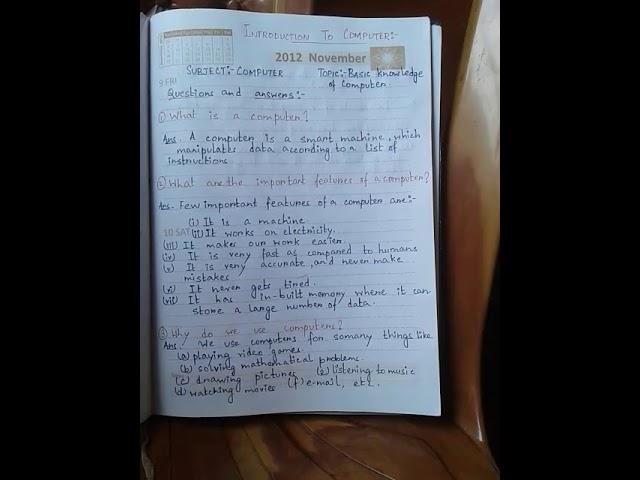 INTRODUCTION TO COMPUTER:-
2012 November
SUBJECT:- COMPUTER TOPIC:- Basic knowledge
of Computer.
9 FRI
Questions and answers:-
① What is a computer?
Ans. A computer is a smart machine, which
manipulates data according to a list of
instructions
② What are the important features of a computer?
Ans. Few important features of a computer are:-
(i) It is a machine
10 SAT (ii) It works on electricity.
(iii) It makes our work easier.
(iv) It is very fast as compared to humans
(v) It is very accurate, and never make
mistakes
(vi) It never gets tired.
(vii) It has in-built memory where it can
store a large number of data.
③ Why do we use computers?
Ans. We use computers for somany things like
(a) playing video games.
(b) solving mathematical problems.
(c) drawing pictures (e) listening to music
(d) watching movies (f) e-mail, etc.